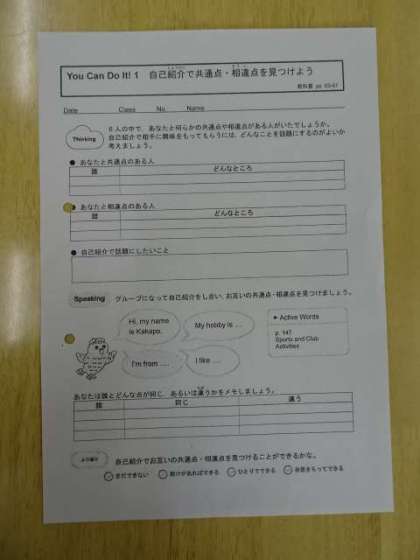 You Can Do It! 1 自己紹介で共通点・相違点を見つけよう
教科書 pp.
Date Class No Name
Thinking
6人の中で，あなたと何らかの共通点や相違点がある人がいたでしょうか。
自己紹介で相手に興味をもってもらうには，どんなことを話題にするのがよいか
考えましょう。
● あなたと共通点のある人
誰 どんなところ
● あなたと相違点のある人
誰 どんなところ
● 自己紹介で話題にしたいこと
Speaking グループになって自己紹介をし合い，お互いの共通点・相違点を見つけましょう。
Hi, my name
is Kakapo.
My hobby is ....
I'm from ....
I like ....
▶ Active Words
p. 147
Sports and Club
Activities
あなたは誰とどんな点が同じ，あるいは違うかをメモしましょう。
誰 同じ 違う
ふり返り
自己紹介でお互いの共通点・相違点を見つけることができるかな。
まだできない 助けがあればできる ひとりでできる 自信をもってできる